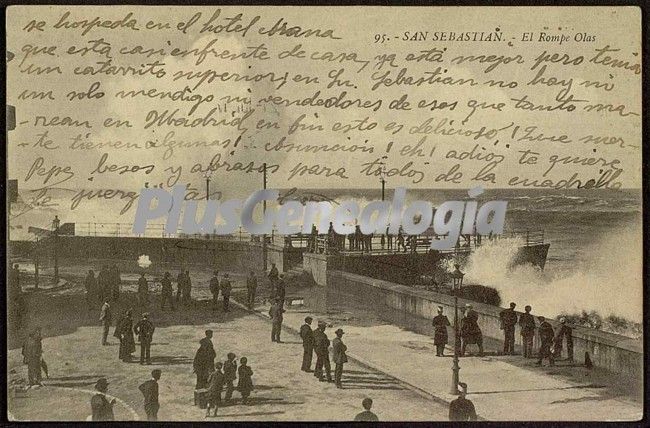 95. - SAN SEBASTIÁN. - El Rompe Olas
se hospeda en el hotel Arana
que esta casi enfrente de casa, ya está mejor pero tenia
un catarrito superior, en Sn. Sebastian no hay ni
un solo mendigo ni vendedores de esos que tanto ma-
rean en Madrid, en fin esto es delicioso ¡Que suer-
te tienen algunas! Asuncion! eh! adiós te quiere
Pepe besos y abrazos para todos de la cuadrilla
te
PlusGenealogía